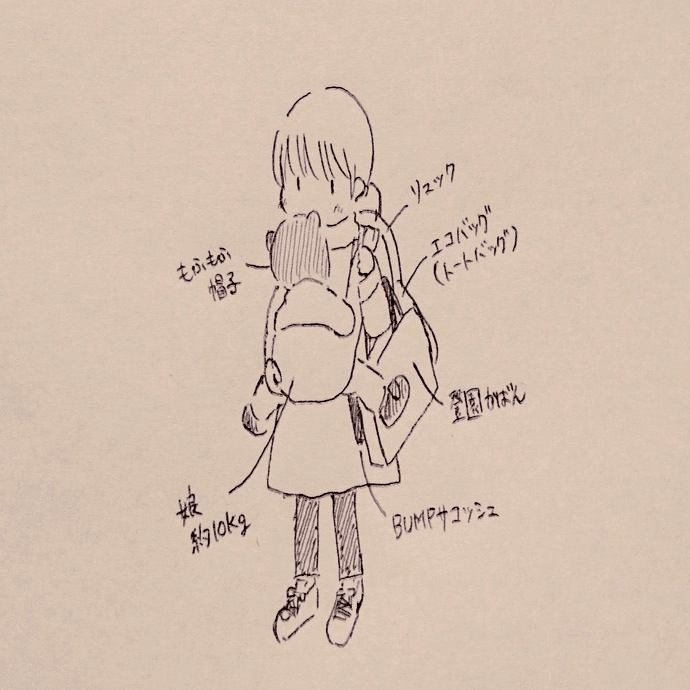 リュック
エコバッグ
(トートバッグ)
もふもふ
帽子
登園かばん
娘
約10kg
BUMPサコッシュ